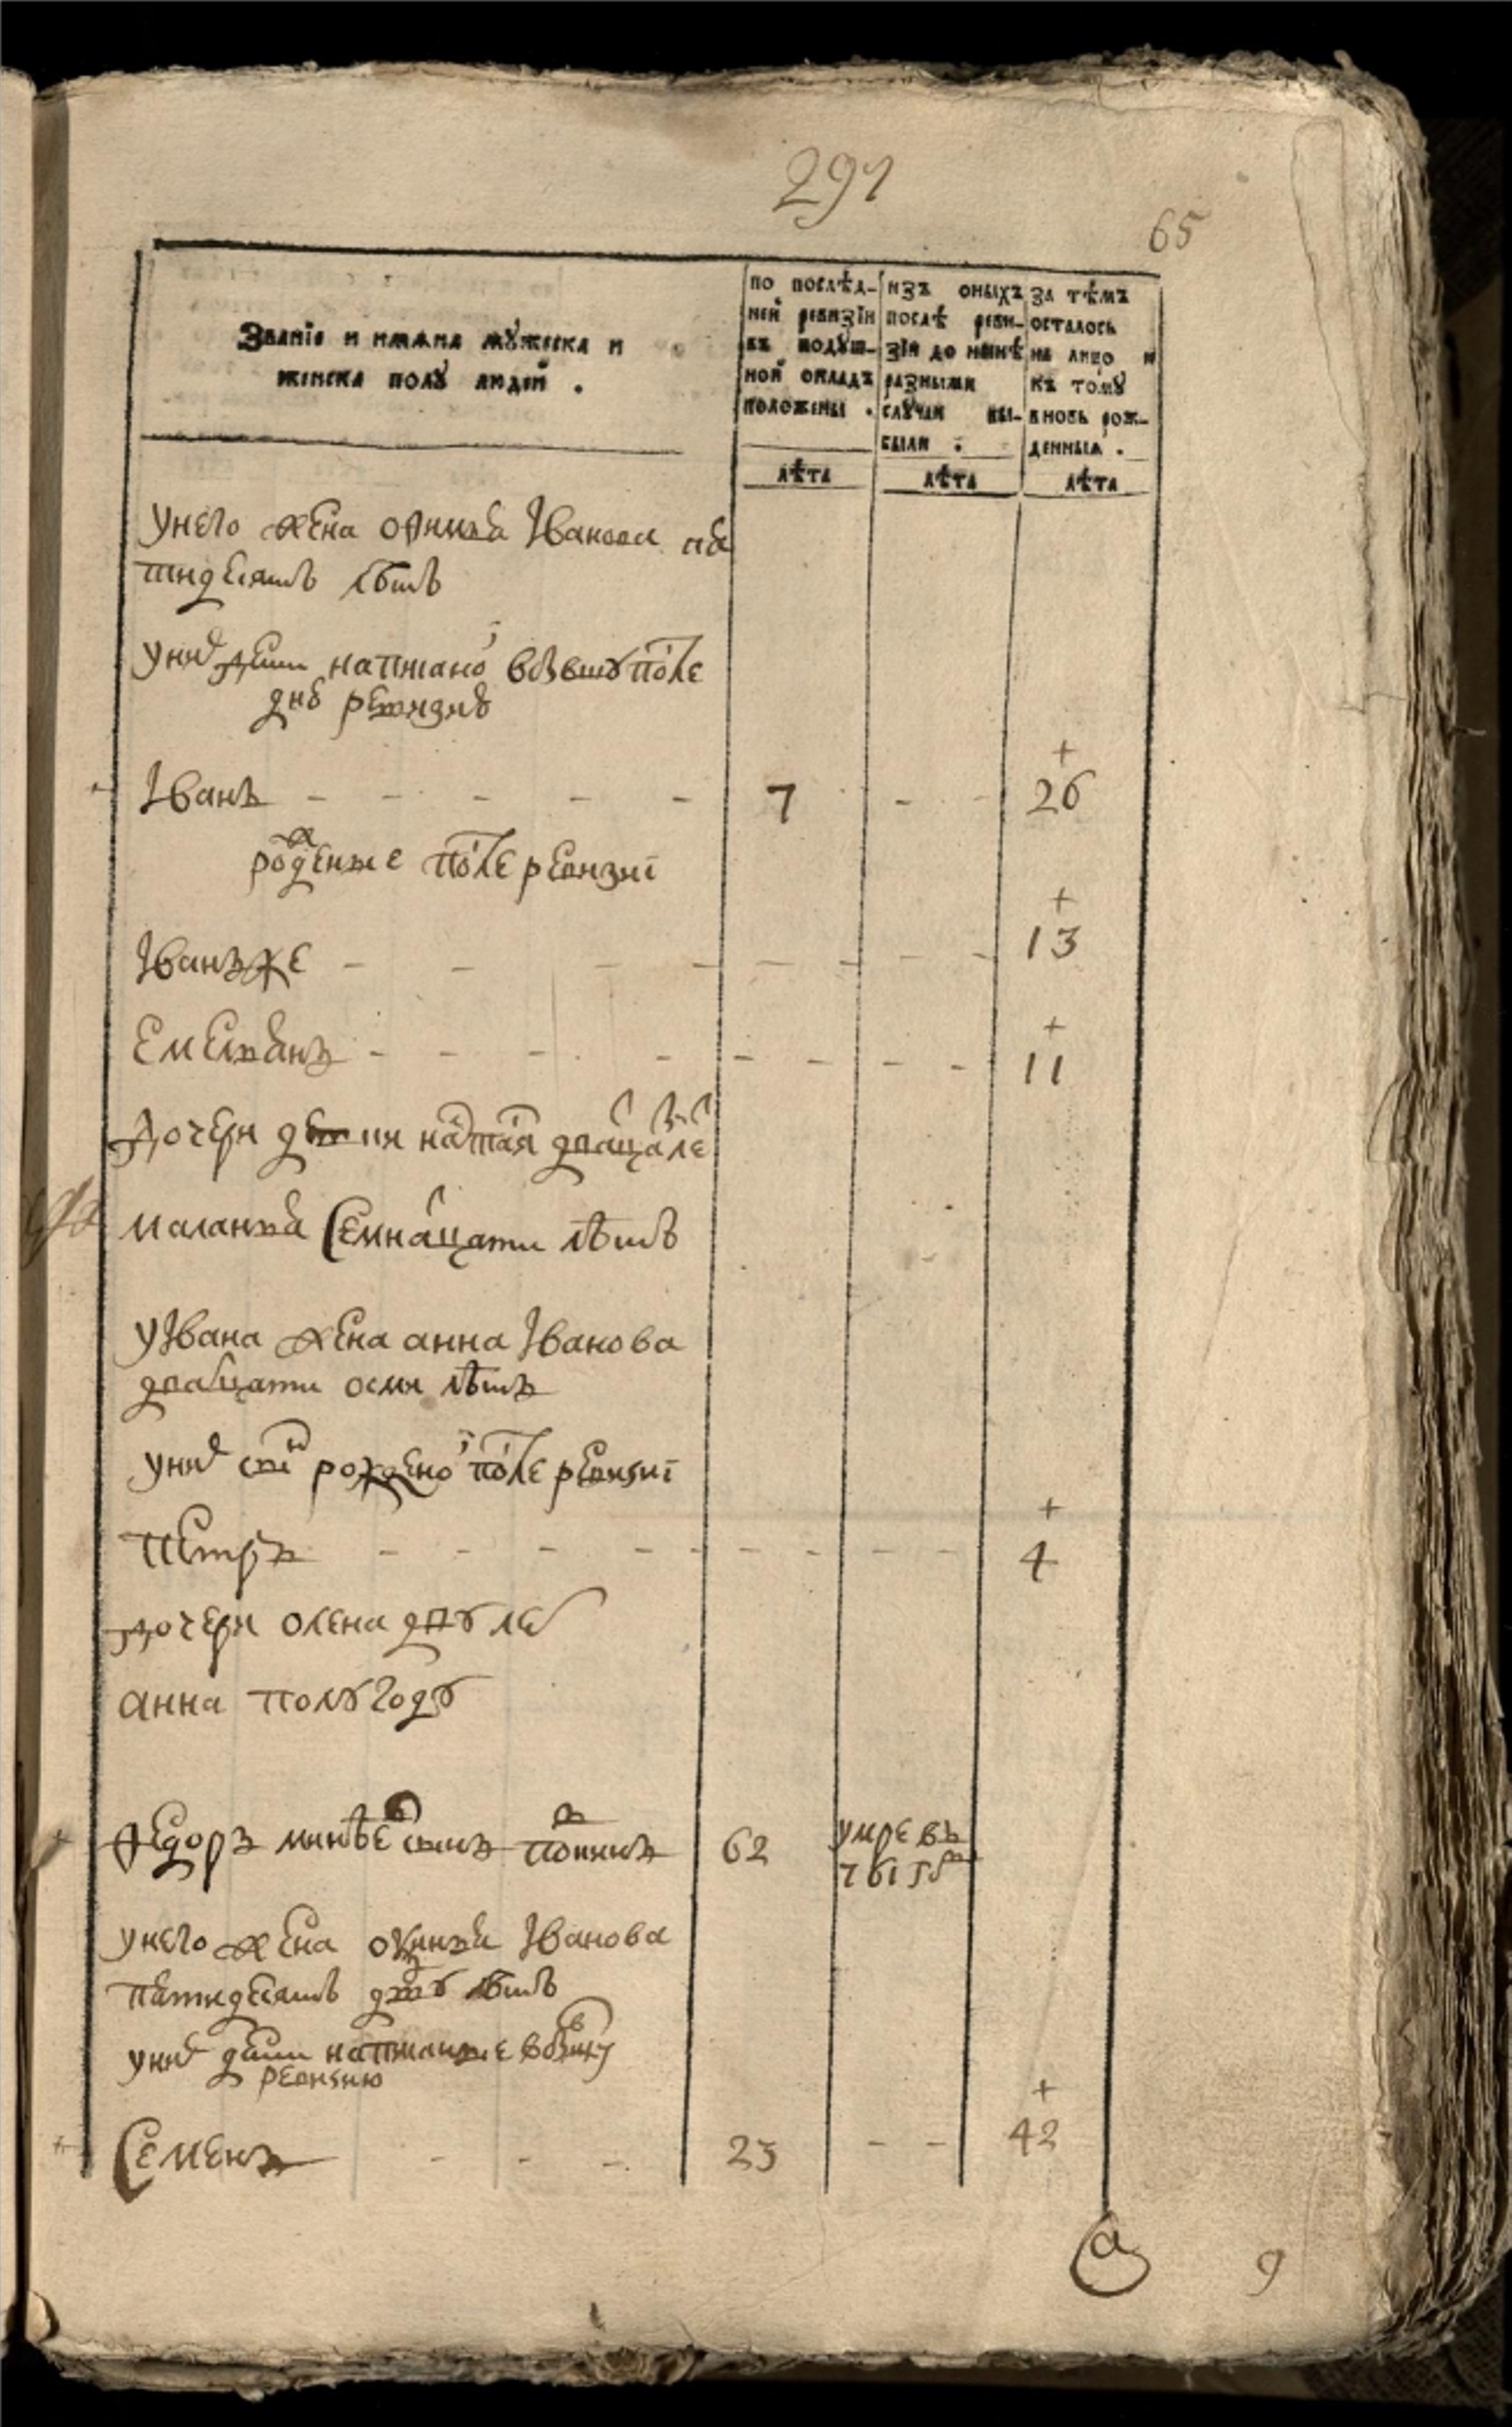 291
65
Званїе и имѧна мꙋжеска и
женска полꙋ людей .
по послѣд-
ней ревизїи
въ подꙋш-
ной окладъ
положены .
изъ оныхъ
послѣ реви-
зїи до нынѣ
разными
слꙋчаи вы-
были .
за тѣмъ
осталось
на лицо и
къ томꙋ
вновь рож-
денныѧ .
лѣта
лѣта
лѣта
У него жена Іванова пѧ
тидесятъ лѣтъ
у них дети написано в бывшꙋ после
дню ревизию
Іванъ 7 26
рожденые после ревизиї
Іванъ же 13
Емельѧнъ 11
Дочери двацать лет
маланьѧ семнацати лѣтъ
у Івана жена анна Іванова
двацати осми лѣтъ
у них рождено после ревизиї
Петръ 4
дочери олена двꙋ лет
анна полꙋ годꙋ
Федоръ минѣев сынъ 62 умре въ
1765 м
у него жена Іванова
пѧтидесятъ двꙋ лѣтъ
у них дети написаные в
ревизию
Семенъ 23 42
а
9